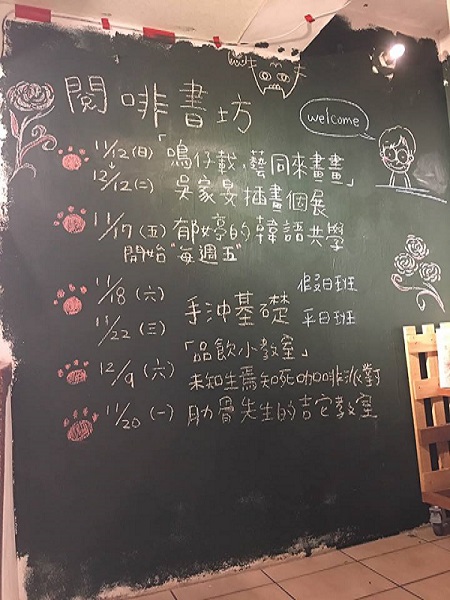 閱啡書坊
welcome
11/12(日)「鳴仔載,藝同來畫畫」
12/12(二) 吳家旻插畫個展
11/17(五) 郁婷的韓語共學
開始"每週五"
11/18(六) 手沖基礎 假日班
11/22(三) 平日班
「品飲小教室」
12/9(六) 未知生焉知死咖啡派對
11/20(一) 肋骨先生的吉它教室